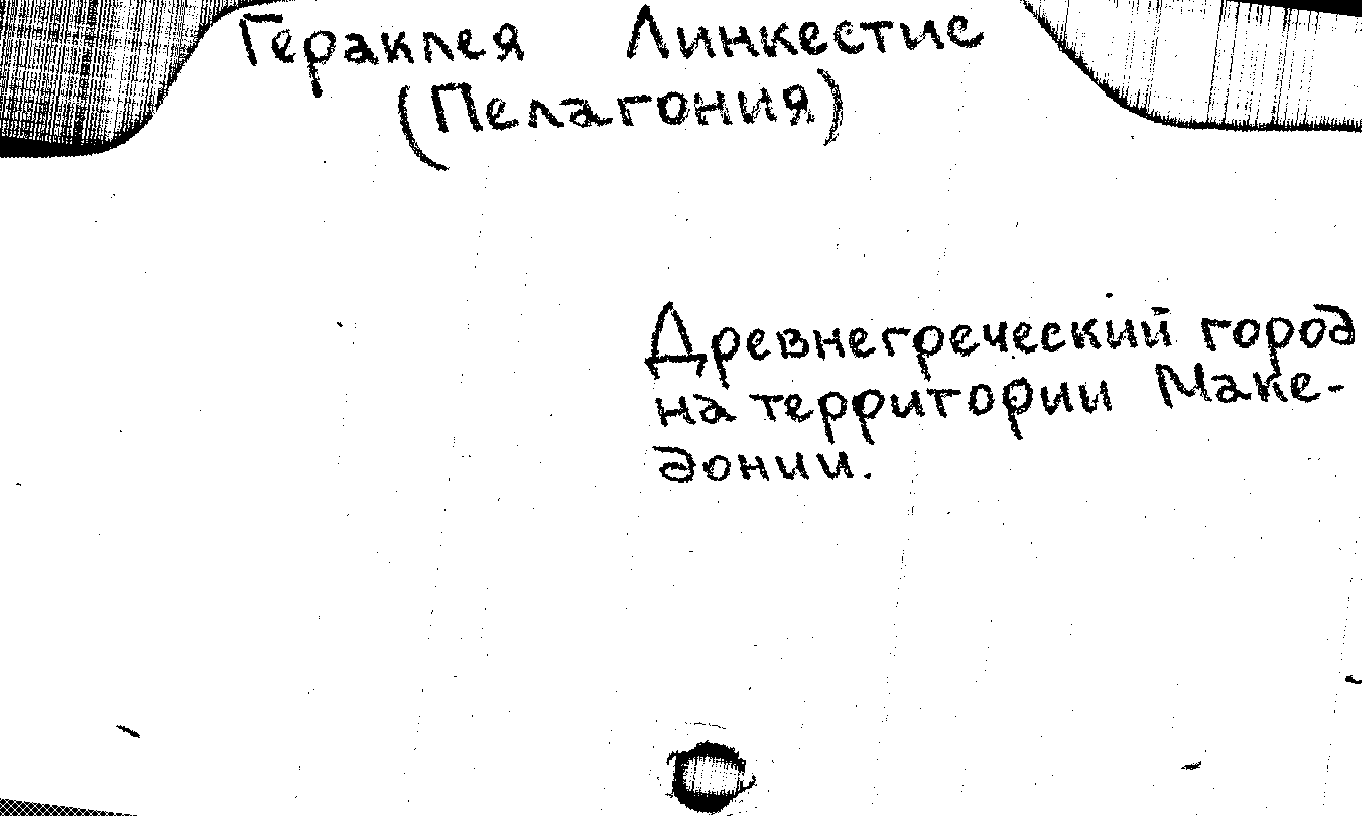 Гераклея Линкестис
(Пелагония)
Древнегреческий город
на территории Маке-
донии.